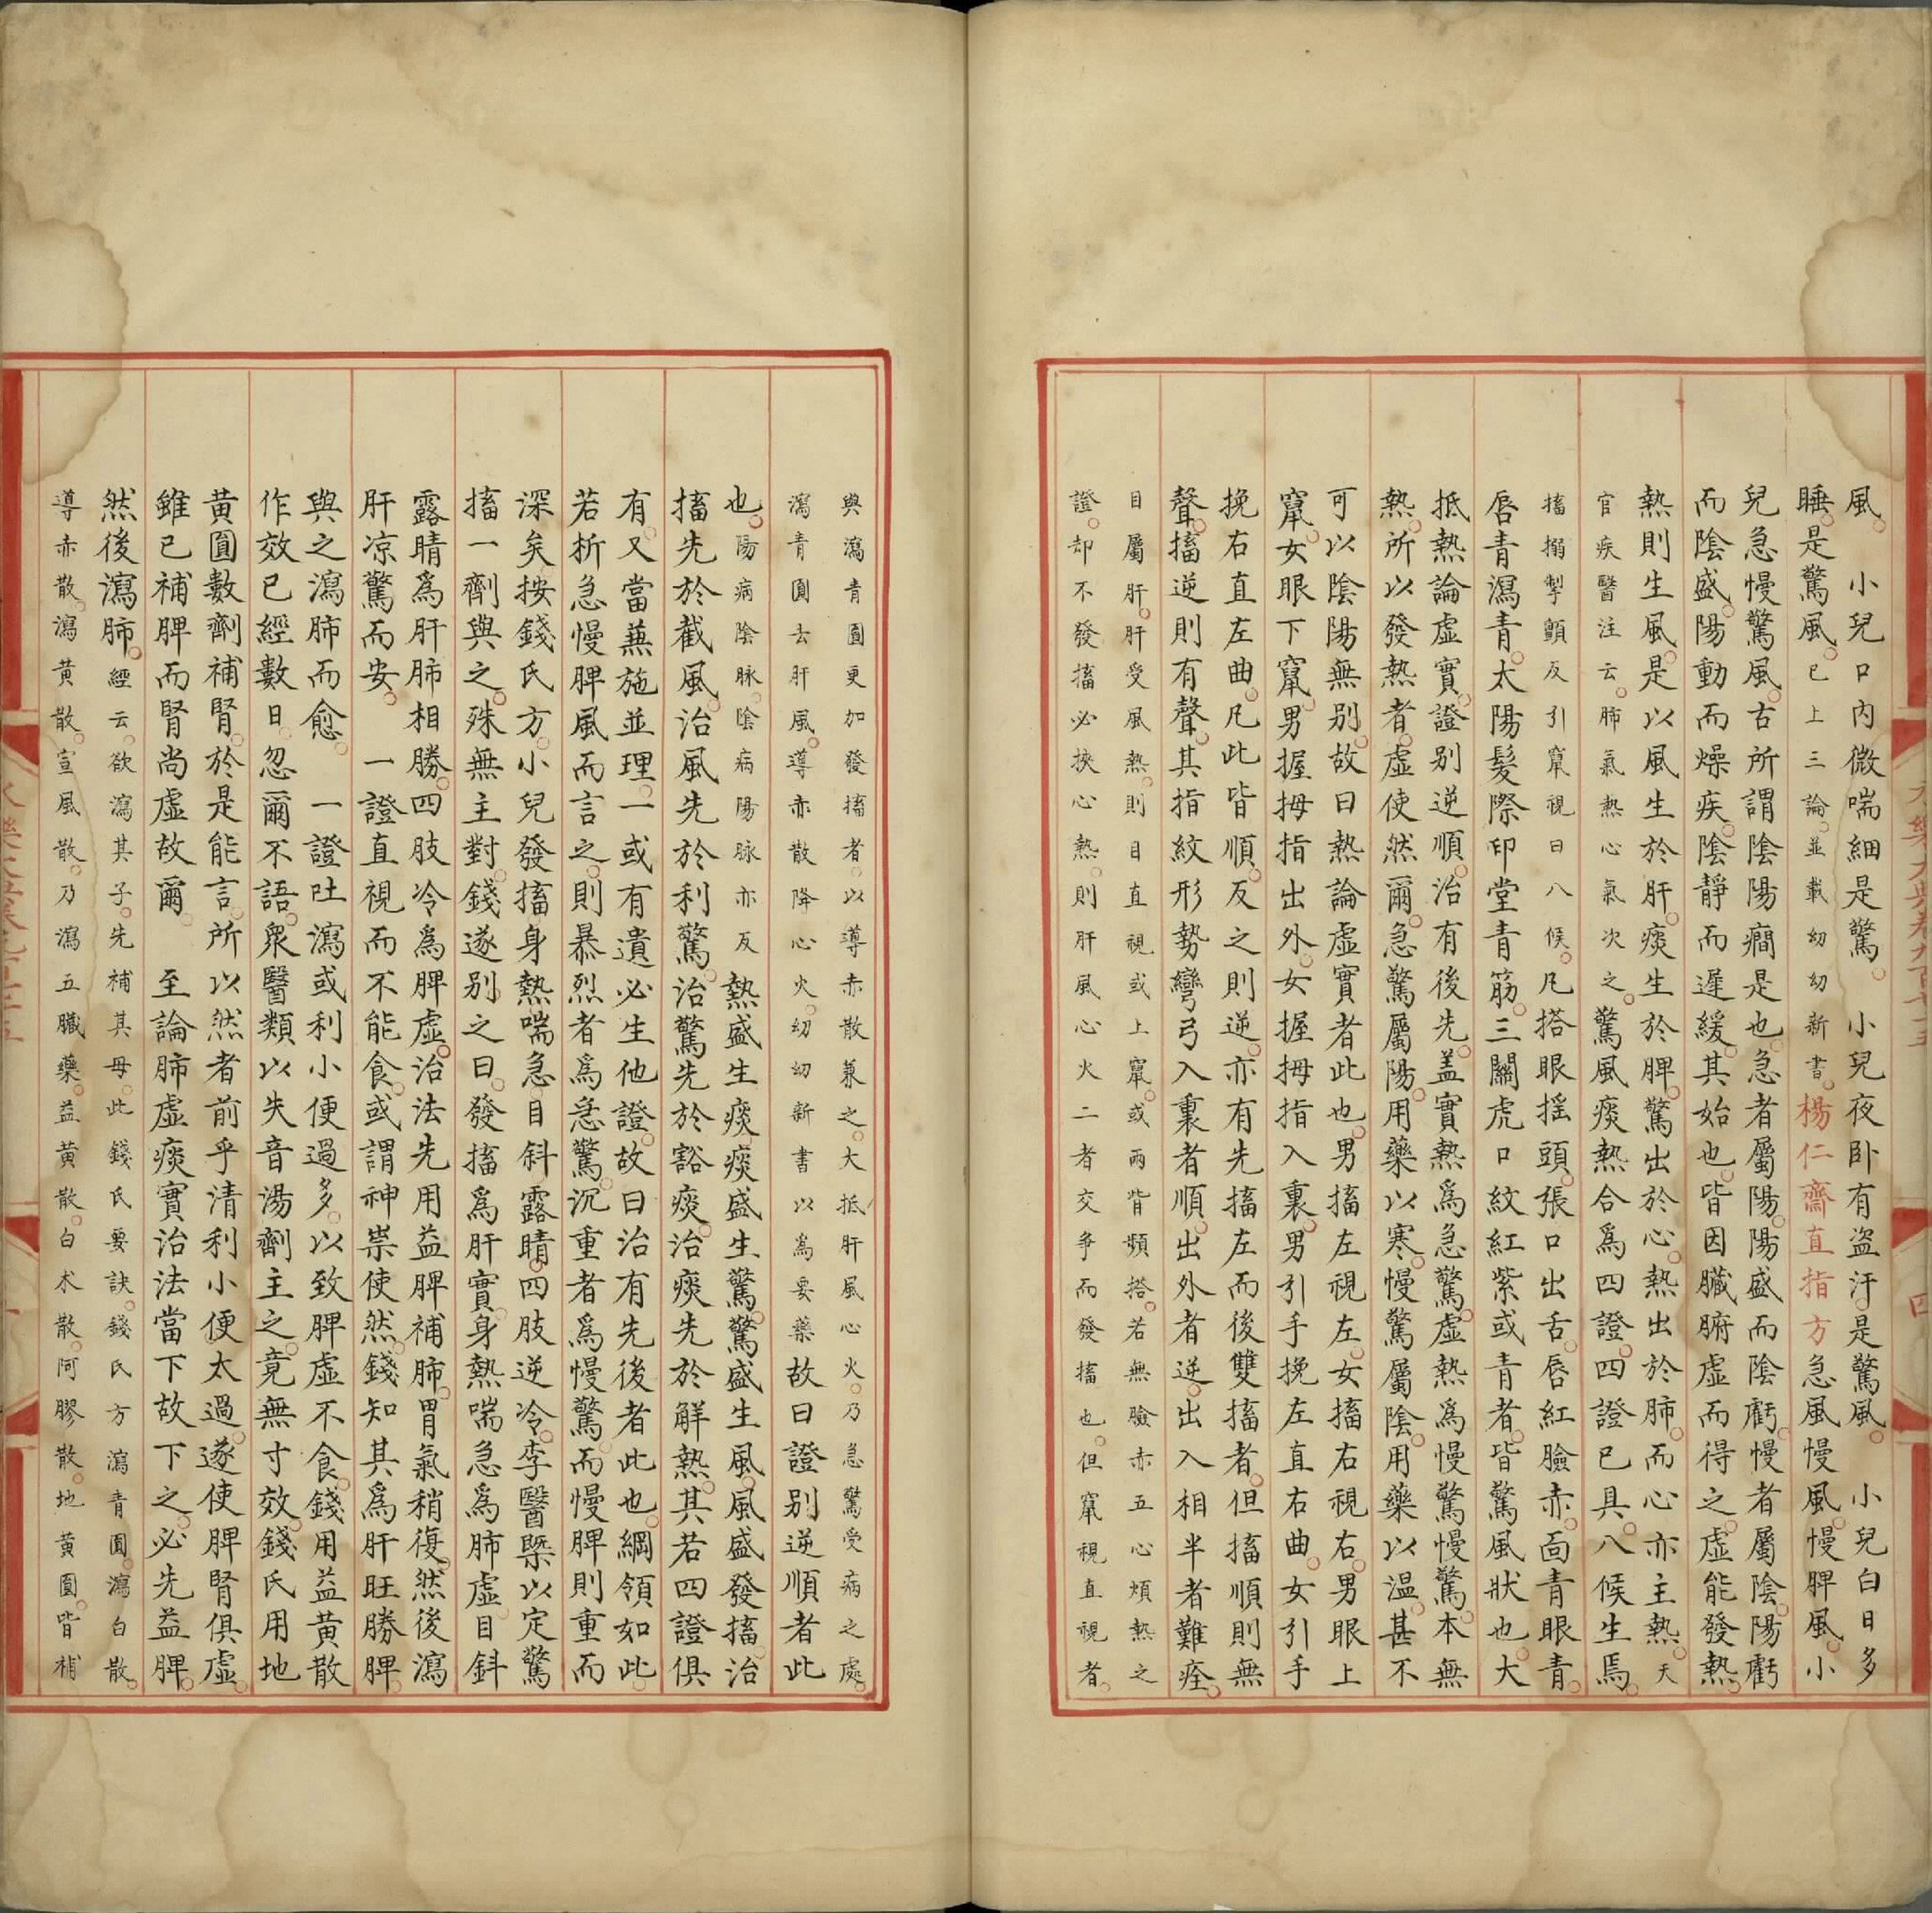 風。　小兒口內微喘細是驚。　小兒夜卧有盗汗。是驚風。　小兒白日多
睡。是驚風。已上三論。並載幼幼新書。楊仁齋直指方急風慢風。慢脾風。小
兒急慢驚風。古所謂陰陽癎是也。急者屬陽。陽盛而陰虧。慢者屬陰。陰陽虧
而陰盛。陽動而燥疾。陰靜而遲緩。其始也。皆因臟腑虛而得之。虛能發熱。
熱則生風。是以風生於肝。痰生於脾。驚出於心。熱出於肺。而心亦主熱。天
官疾醫注云。肺氣熱心氣次之。驚風痰熱合爲四證。四證已具。八候生焉。
搐搦掣顫反引竄視曰八候。凡搭眼搖頭。張口出舌。唇紅臉赤。面青眼青。
唇青瀉青。太陽髮際印堂青筋。三關虎口紋紅紫或青者。皆驚風狀也。大
抵熱論虛實。證别逆順。治有後先。盖實熱爲急驚。虛熱爲慢驚慢驚。本無
熱。所以發熱者。虛使然爾。急驚屬陽。用藥以寒。慢驚屬陰。用藥以温。甚不
可以陰陽無别。故曰熱論虛實者此也。男搐左視左。女搐右視右。男眼上
竄。女眼下竄。男握拇指出外。女握拇指入裏。男引手挽左直右曲。女引手
挽右直左曲。凡此皆順。反之則逆。亦有先搐左而後雙搐者。但搐順則無
聲。搐逆則有聲。其指紋形勢彎弓入裏者順。出外者逆。出入相半者難痊。
目屬肝。肝受風熱。則目直視或上竄。或兩眥頻搭。若無臉赤五心煩熱之
證。却不發搐必挾心熱。則肝風心火二者交爭而發搐也。但竄視直視者。
與瀉青圓更加發搐者。以導赤散兼之。大抵肝風心火。乃急驚受病之處。
瀉青圓去肝風。導赤散降心火。幼幼新書以爲要藥故曰證别逆順者此
也。陽病陰脉。陰病陽脉亦反熱盛生痰。痰盛生驚。驚盛生風。風盛發搐。治
搐先於截風。治風先於利驚。治驚先於豁痰。治痰先於解熱。其若四證俱
有。又當蒹施並理。一或有遺。必生他證。故曰治有先後者此也。綱領如此。
若析急慢脾風而言之。則暴烈者爲急驚。沉重者爲慢驚。而慢脾則重而
深矣按錢氏方。小兒發搐身熱喘急。目斜露睛。四肢逆冷。李醫槩以定驚
搐一劑與之。殊無主對。錢遂别之曰。發搐爲肝實。身熱喘急爲肺虛。目斜
露睛爲肝肺相勝。四肢冷爲脾虛。治法先用益脾補肺。胃氣稍復。然後瀉
肝凉驚而安。　一證直視而不能食。或謂神祟使然。錢知其爲肝旺勝脾。
與之瀉肺而愈。　一證吐瀉或利小便過多。以致脾虛不食。錢用益黄散
作效已經數日。忽爾不語。衆醫類以失音湯劑主之。竟無寸效。錢氏用地
黄圓數劑補腎。於是能言。所以然者前乎清利小便太過。遂使脾腎俱虛。
雖已補脾而腎尚虛故爾。　至論肺虛痰實治法當下故下之。必先益脾。
然後瀉肺。經云。欲瀉其子。先補其母。此錢氏要訣。錢氏方瀉青圓。瀉白散。
導赤散。瀉黄散。宣風散。乃瀉五臟藥。益黄散。白术散。阿膠散。地黄圓。皆補